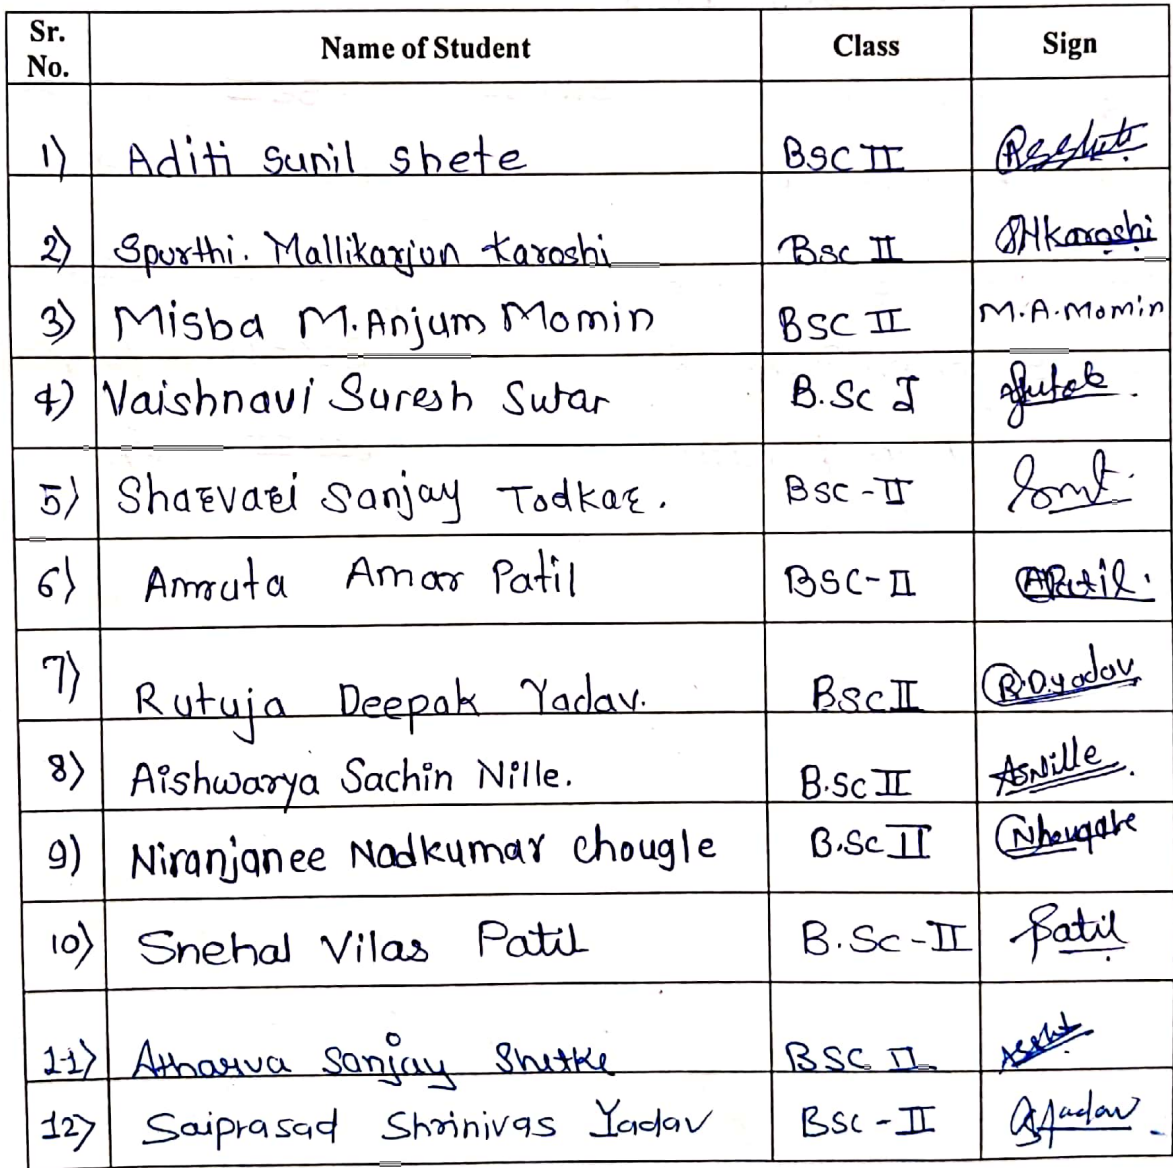 Sr. No. Name of Student Class Sign
1) Aditi Sunil Shete BSC II
2) Spurthi. Mallikarjun Karoshi Bsc II SHKaroshi
3) Misba M.Anjum Momin BSC II M.A.Momin
4) Vaishnavi Suresh Sutar B.Sc I
5) Sharvari Sanjay Todkar. BSC-II
6) Amruta Amar Patil BSC-II APatil.
7) Rutuja Deepak Yadav. BSC II R.D.yadav
8) Aishwarya Sachin Nille. B.Sc II ASNille
9) Niranjanee Nadkumar Chougle B.Sc II
10) Snehal Vilas Patil B.Sc-II Patil
11) Atharva Sanjay Shetke BSC II
12) Saiprasad Shrinivas Yadav BSC-II